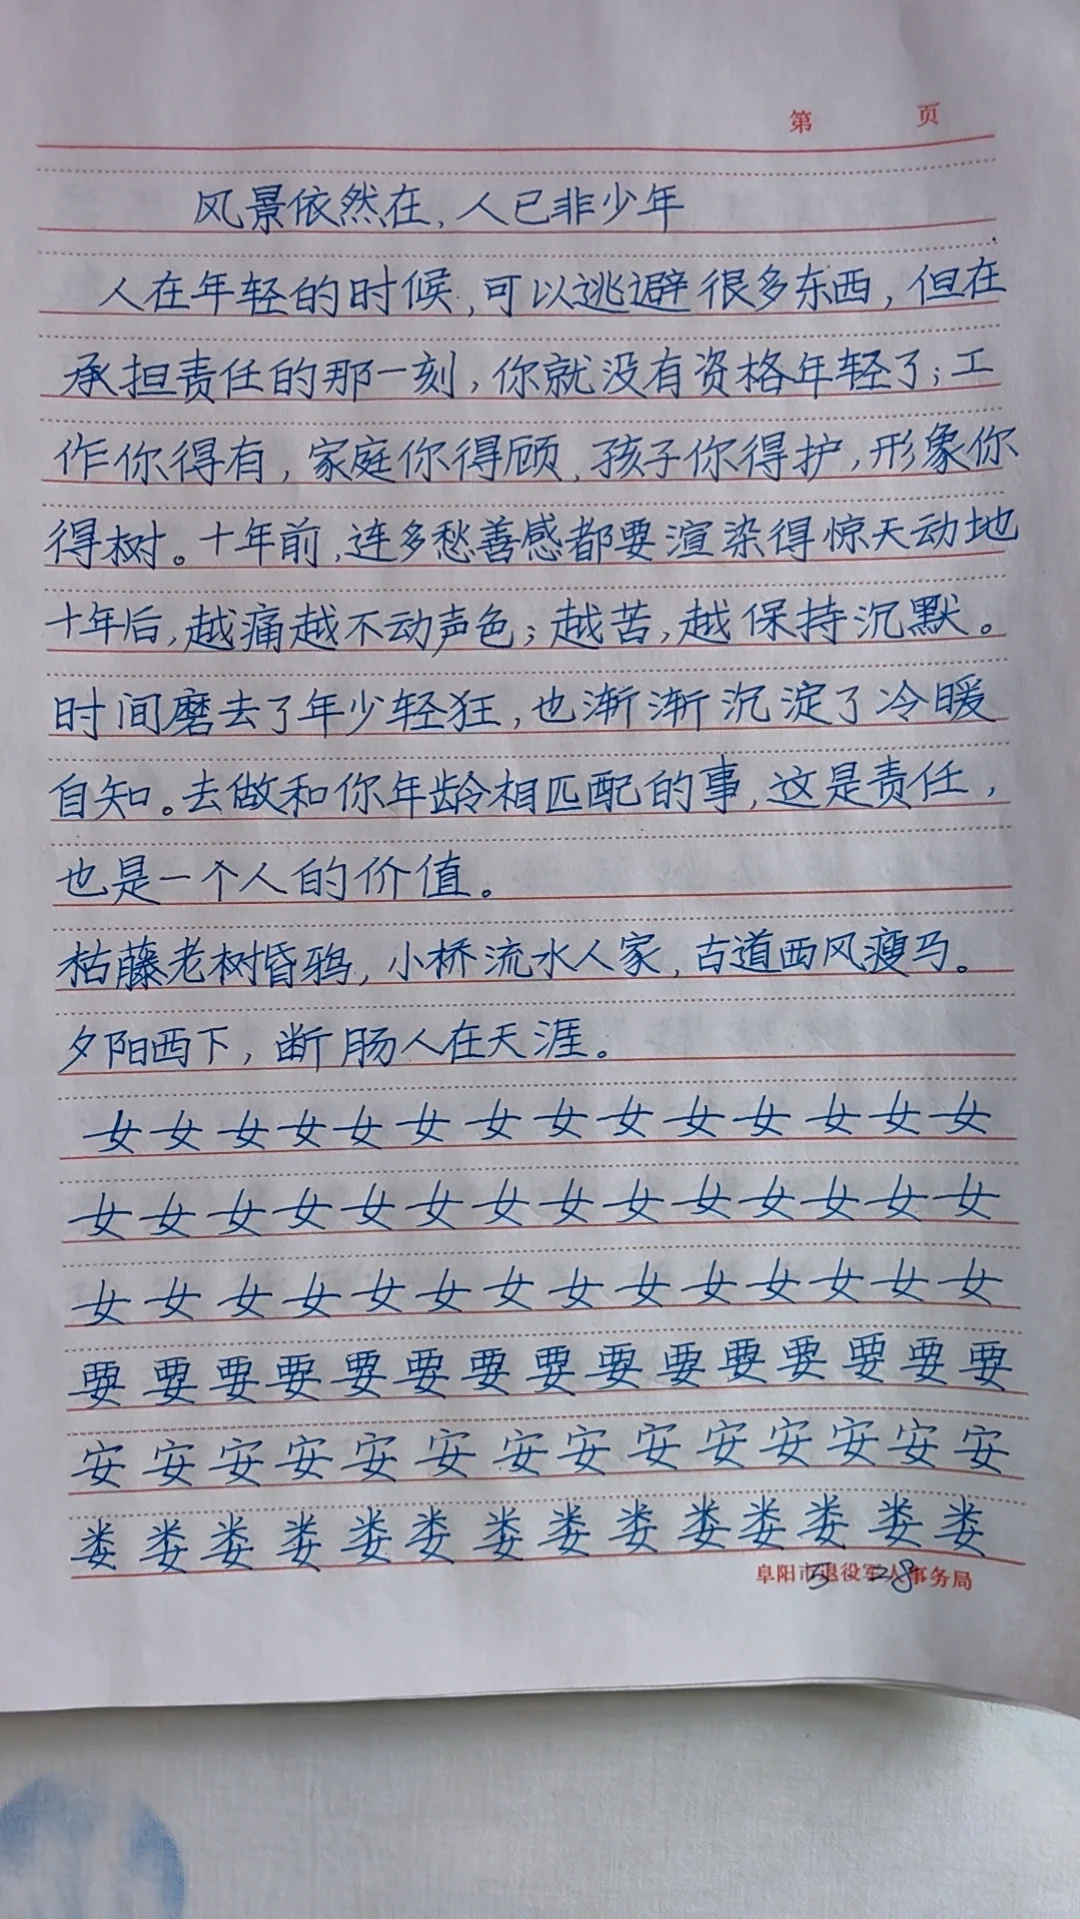 第 页
风景依然在，人已非少年
人在年轻的时候，可以逃避很多东西，但在
承担责任的那一刻，你就没有资格年轻了；工
作你得有，家庭你得顾，孩子你得护，形象你
得树。十年前，连多愁善感都要渲染得惊天动地
十年后，越痛越不动声色；越苦，越保持沉默。
时间磨去了年少轻狂，也渐渐沉淀了冷暖
自知。去做和你年龄相匹配的事，这是责任，
也是一个人的价值。
枯藤老树昏鸦，小桥流水人家，古道西风瘦马。
夕阳西下，断肠人在天涯。
女女女女女女女女女女女女女女
女女女女女女女女女女女女女女
女女女女女女女女女女女女女女
要要要要要要要要要要要要要要要
安安安安安安安安安安安安安安
娄娄娄娄娄娄娄娄娄娄娄娄娄娄
阜阳市退役军人事务局